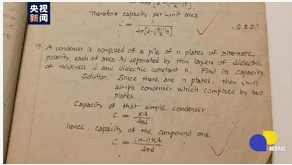 央视新闻
Therefore capacity per unit area
C =
(Q.E.D.)
A condenser is composed of a pile of n plates of alternate
polarity each of area A, separated by thin layers of dielectric
of thickness d and dielectric constant K. Find its capacity
Solution. Since there are n plates, then (n-1)
simple condenser which composed by two
plates.
Capacity of that simple condenser
C = KA/4πd
hence, capacity of the compound one
C = (n-1)KA/4πd